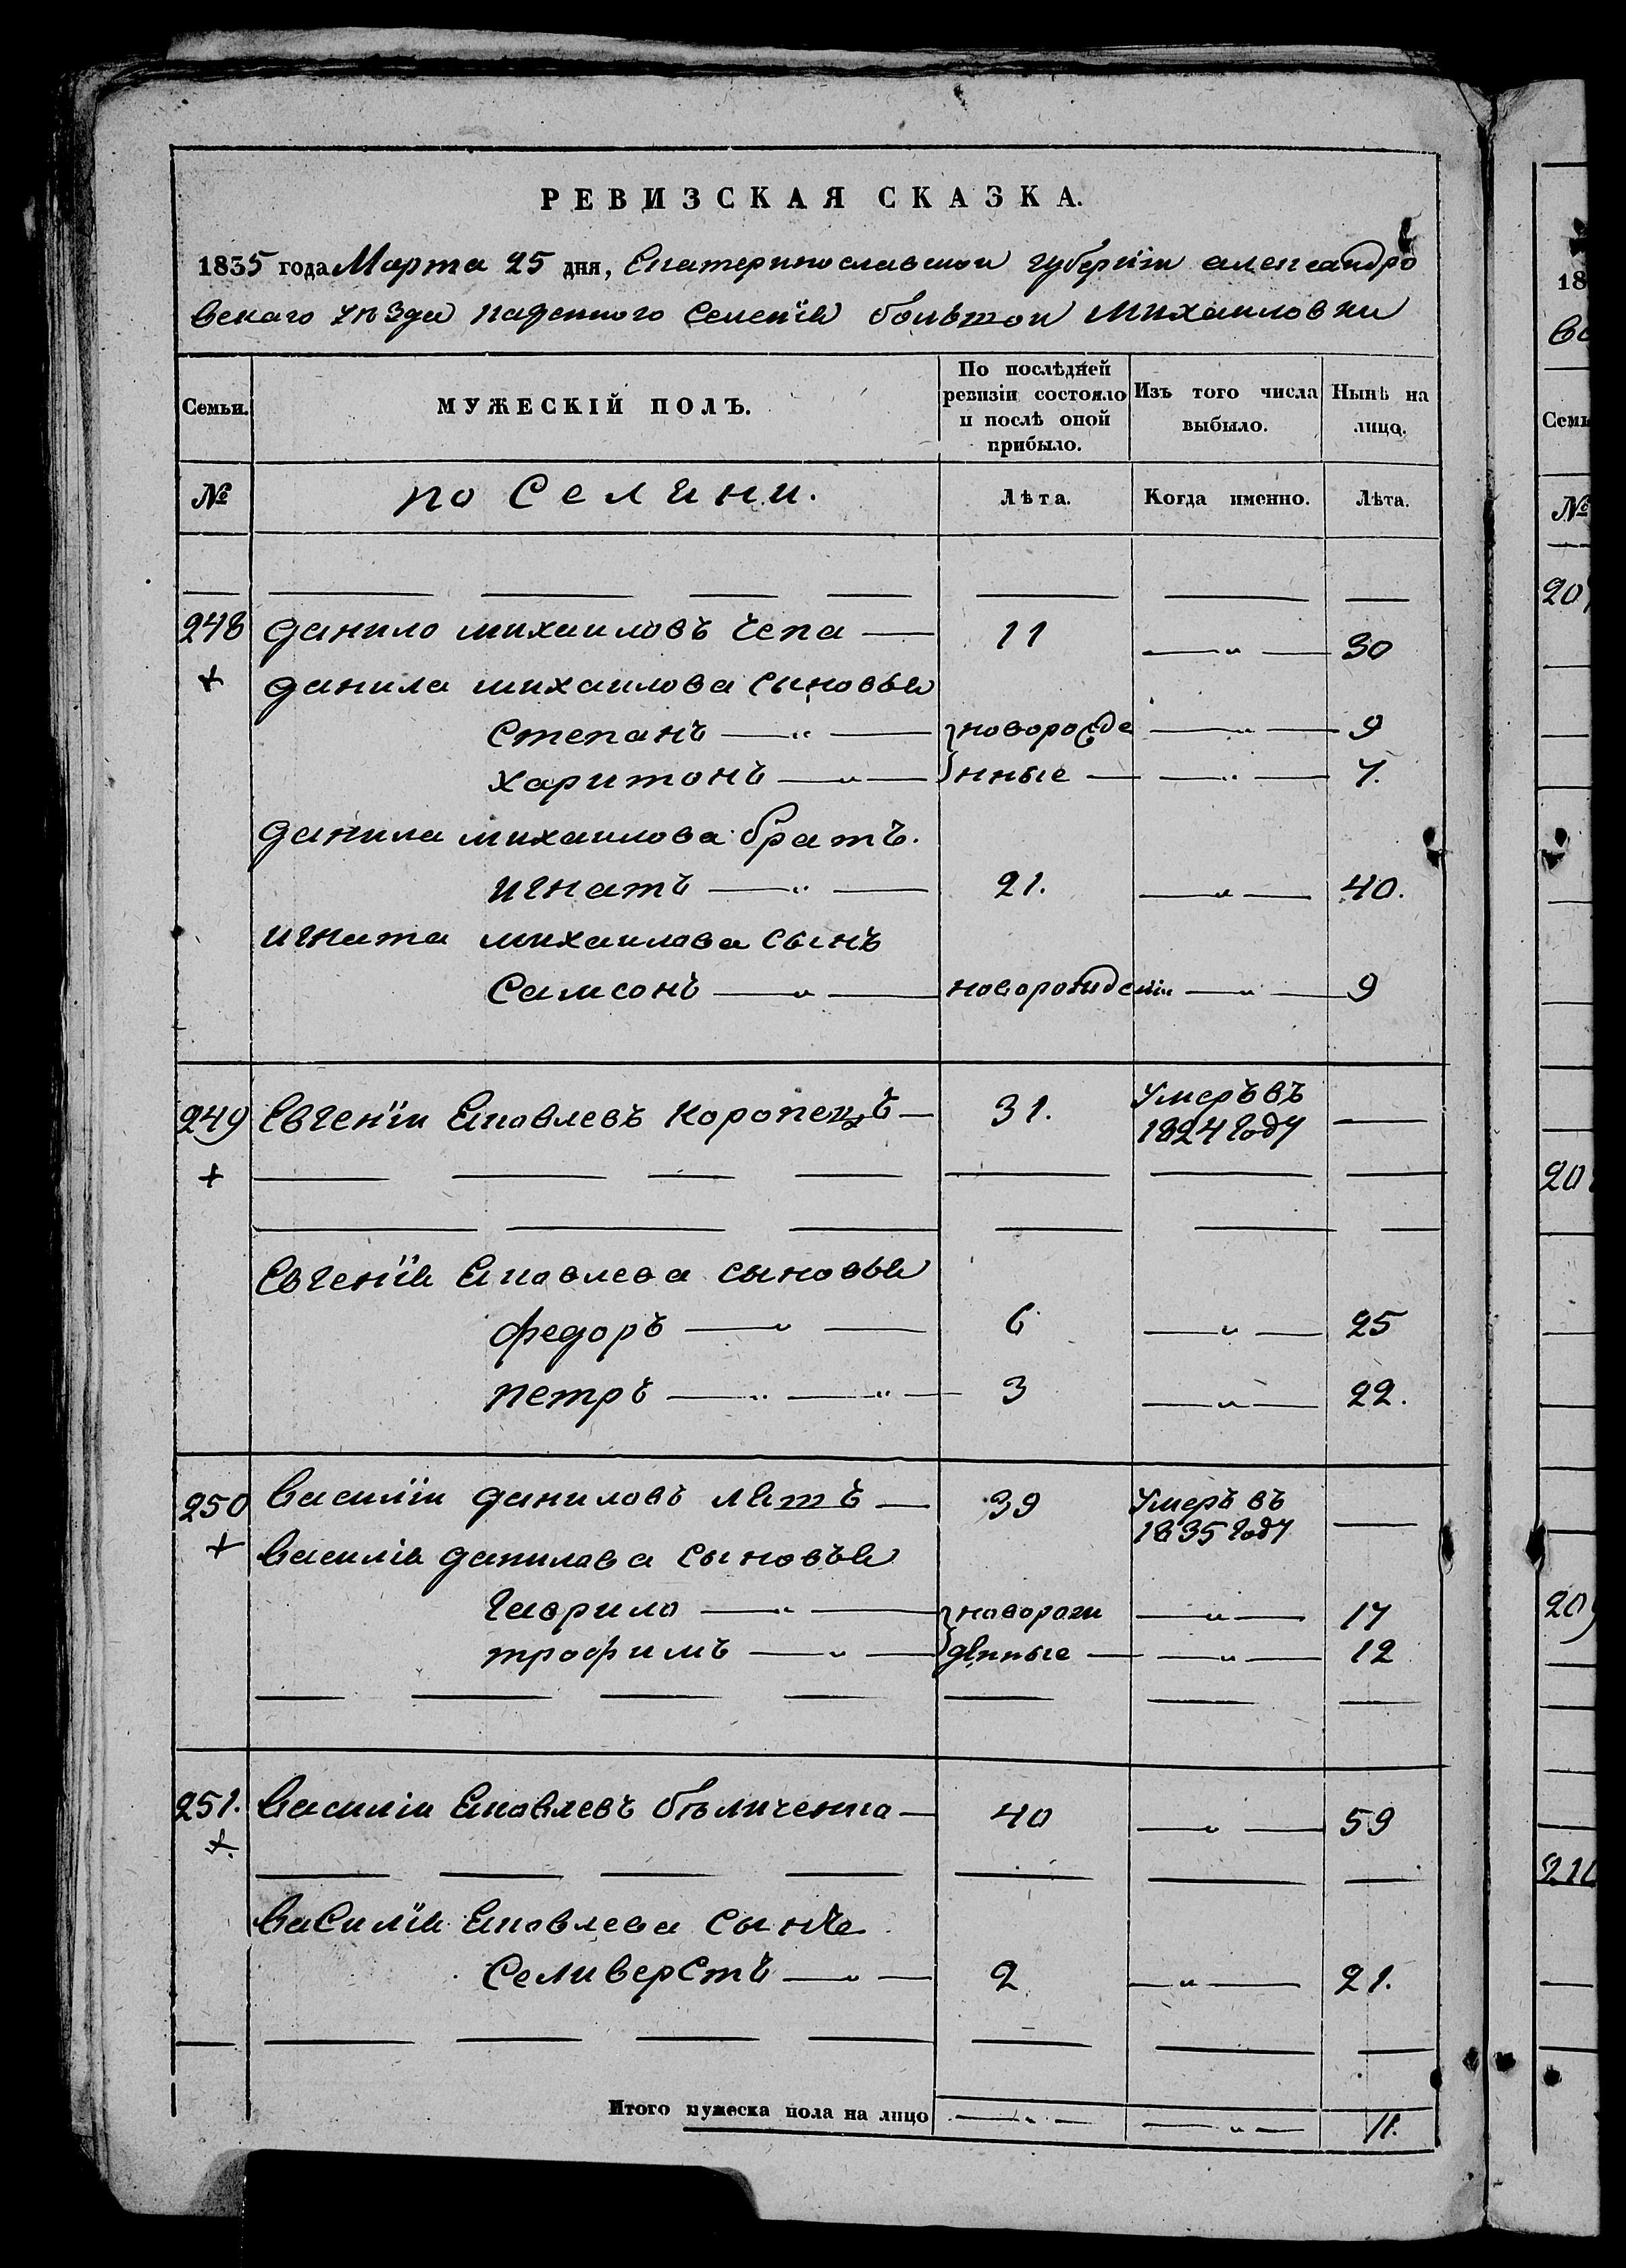 РЕВИЗСКАЯ СКАЗКА.
1835 года Марта 25 дня, Екатеринославской губернїи александро
вскаго уѣзда казенного селенїя большой михаиловки
Семьи. МУЖЕСКІЙ ПОЛЪ. По послѣдней ревизіи состояло и послѣ оной прибыло. Изъ того числа выбыло. Нынѣ на лицо.
№ по Селѝни. Лѣта. Когда именно. Лѣта.
248 данило михаиловъ Чепа — 11 — „ — 30
+ данила михаилова сыновья
Степанъ — „ — новорожде — „ — 9
харитонъ — „ — нные — — „ — 7.
данила михаилова братъ.
игнатъ — „ — 21. — „ — 40.
игната михаилова сынъ
Самсонъ — „ — новорожденїи — „ — 9
249 Евгенїи Яковлевъ Коропецъ — 31. Умеръ въ 1824 году —
+
Евгенїя Яковлева сыновья
федоръ — „ — 6 — „ — 25
петръ — „ — „ — 3 — „ — 22.
250 Василїи даниловъ лятъ — 39 Умеръ въ 1835 году —
+ Василїя данилова сыновья
Гаврило — „ — новорож — „ — 17
трофимъ — „ — денные — — „ — 12
251. Василіи Яковлевъ бѣличенко — 40 — „ — 59
+.
Василїя Яковлева сынъ
Селиверстъ — „ — 2 — „ — 21.
Итого мужеска пола на лицо — „ — — „ — 11.
18
Семь
№
20
20
209
210